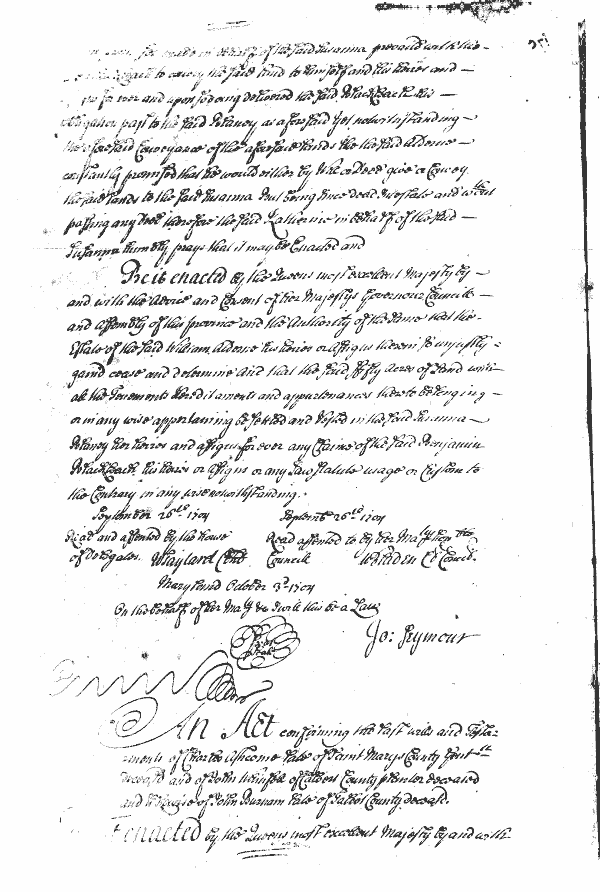 for make in behalf of the said Susanna prevail with the
to convey the said Land to himself and his heires and
for ever and upon so doing delivered the said Blackleach his
obligation past to the said Delaney as aforesaid Yet notwithstanding
the aforesaid Conveyance of the aforesaid Lands the said Aldernes
constantly promised that he would either by Will or Deed give or Convey
the said Lands to the said Susanna but being since dead Intestate and without
passing any Deed therefore the said Katherine in behalf of the said
Susanna humbly prays that it may be Enacted and
Be it enacted by the Queens most excellent Majesty by
and with the Advice and Consent of her Majestys Governour Councill
and Assembly of this province and the Authority of the same that the
Estate of the said William Alderne his heires or Assigns therein so unjustly
gaind cease and determine And that the said fifty Acres of Land with
all the Tenements Hereditaments and appurtenances thereto belonging
or in any wise appertaining be settled and Vested in the said Susanna
Delaney her heires and assigns for ever any Claime of the said Benjamin
Blackleach his heires or assigns or any Law statute usage or Custome to
the Contrary in any wise notwithstanding.
September 26th 1704 Septemr 26th 1704
Read and assented by the house Read assented to by her Majtys honble
of Delegates. WTaylard Clk Councill WBladen Cl Concil.
Maryland October 3d 1704
On the behalf of her Majty &c I will this be a Law
Jo: Seymour
An Act confirming the last wills and Testa-
ments of Charles Ashcome late of Saint Marys County Gent
deceased and of John Whinfell of Calvert County planter deceased
and likewise of John Burham late of Talbot County deceased.
enacted by the Queens most excellent Majesty by and with